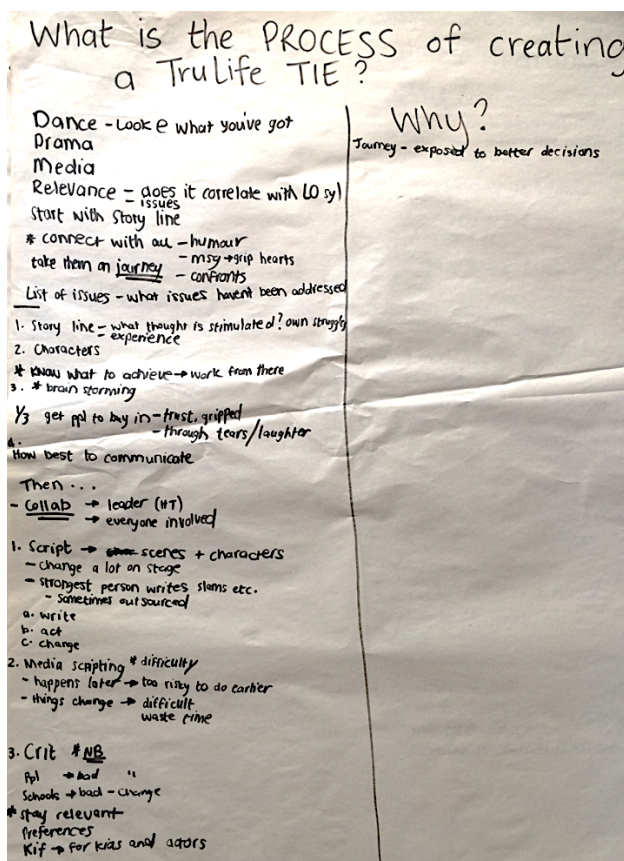 What is the PROCESS of creating
a TruLife TIE?
Dance - Look @ what you've got
Drama
Media
Relevance - does it correlate with LO syl
- issues
Start with Story line
* connect with all - humour
take them on journey - msg → grip hearts
- confronts
List of issues - what issues havent been addressed
1. Story line - what thought is stimulated? own struggle
- experience
2. Characters
* Know what to achieve → work from there
3. * brain storming
1/3 get ppl to buy in - trust, gripped
- through tears/laughter
4.
How best to communicate
Then ...
- Collab → leader (HT)
→ everyone involved
1. Script → scenes + characters
- change a lot on stage
- strongest person writes slams etc.
- sometimes outsourced
a. write
b. act
c. change
2. Media scripting * difficulty
- happens later → too risky to do earlier
- things change → difficult
waste time
3. Crit * NB
Ppl → bad "
Schools → bad - change
* stay relevant
Preferences
Kif → for kids and actors
Why?
Journey - exposed to better decisions